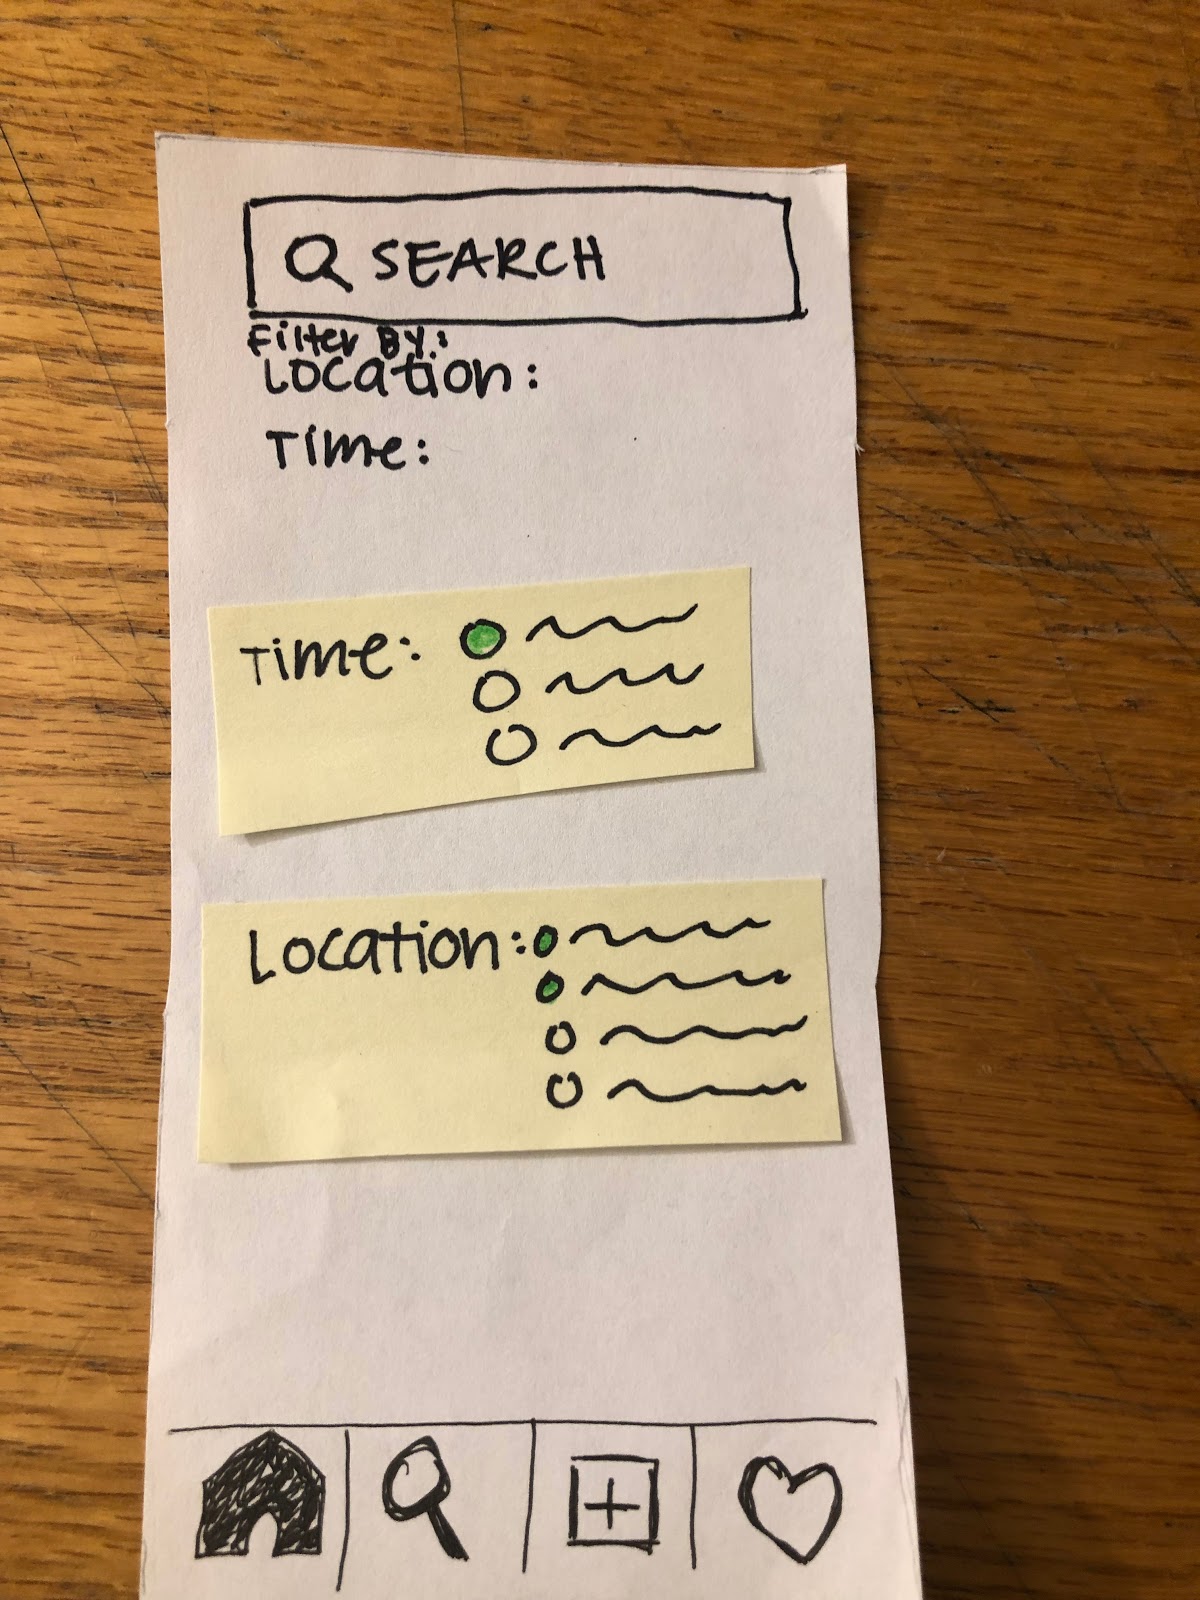 SEARCH
Filter By:
Location:
Time:
Time:
Location: